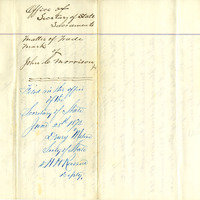 Office of
Secretary of State
Sacramento
Matter of Trade
Mark
of
John C. Morrison
Filed in the office
of the
Secretary of State
June 25th 187
Drury Melone
Secty of State
Deputy